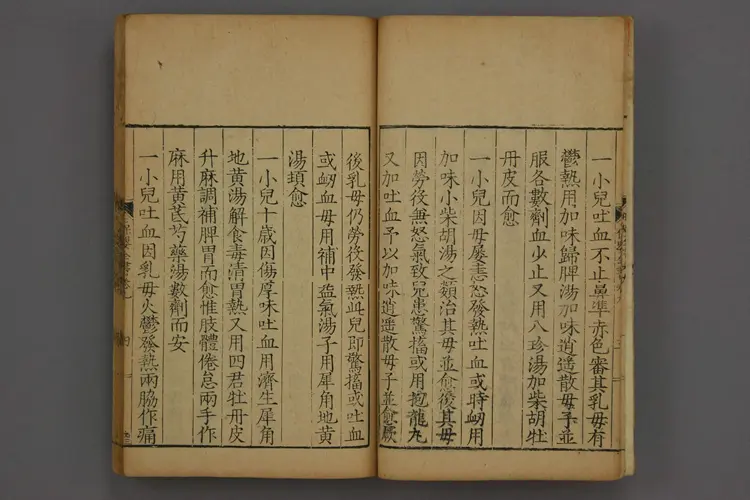 一小兒吐血不止鼻準赤色審其乳母有
鬱熱用加味歸脾湯加味逍遙散母子並
服各數劑血少止又用八珍湯加柴胡牡
丹皮而愈
一小兒因母屡恚怒發熱吐血或時衂用
加味小柴胡湯之類治其母並愈後其母
因勞役無怒氣致兒患驚搐或用抱龍丸
又加吐血予以加味逍遙散母子並愈厥
後乳母仍勞役發熱此兒即驚搐或吐血
或衂血母用補中益氣湯子用犀角地黃
湯頓愈
一小兒十歲因傷厚味吐血用濟生犀角
地黃湯解食毒清胃熱又用四君牡丹皮
升麻調補脾胃而愈惟肢體倦怠兩手作
麻用黃芪芍藥湯數劑而安
一小兒吐血因乳母火鬱發熱兩脇作痛